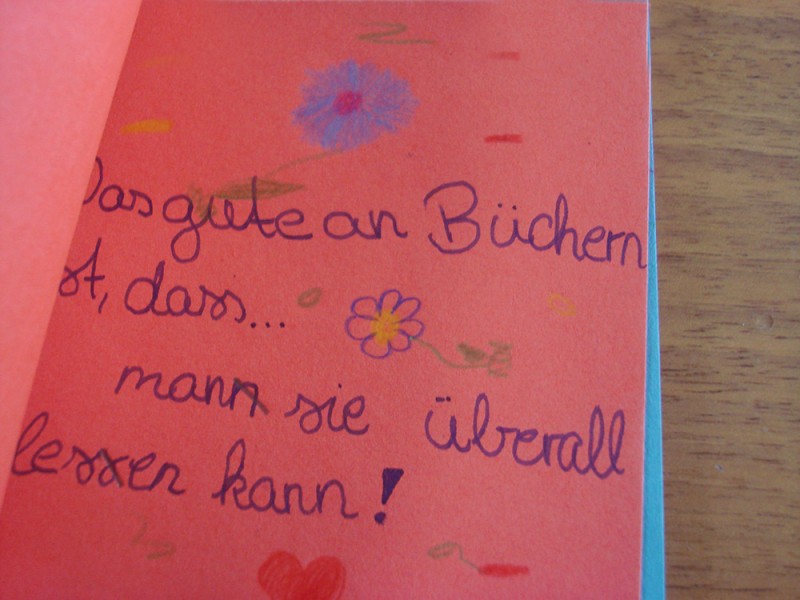 Das gute an Büchern
st, dass...
man sie überall
lesen kann!